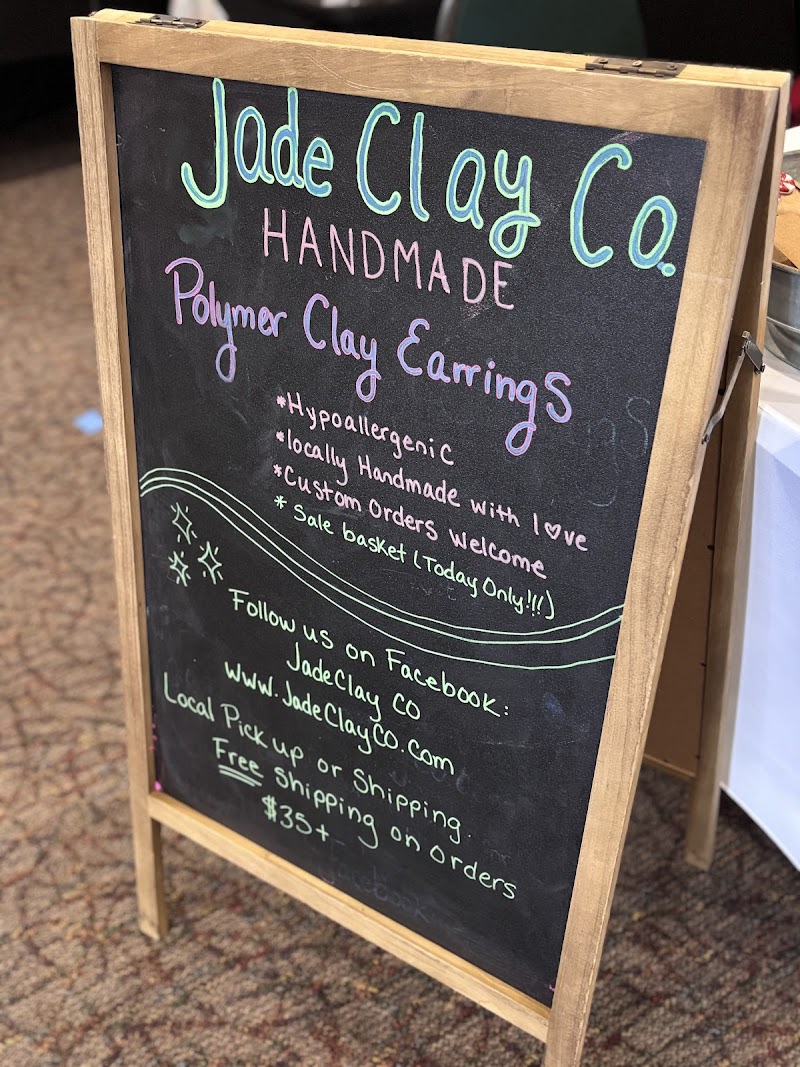 Jade Clay Co.
HANDMADE
Polymer Clay Earrings
*Hypoallergenic
*locally Handmade with l♡ve
*Custom Orders Welcome
* Sale basket (Today Only!!!)
Follow us on Facebook:
JadeClay CO
www.JadeClayCO.com
Local Pick up or Shipping.
Free Shipping on Orders
$35+